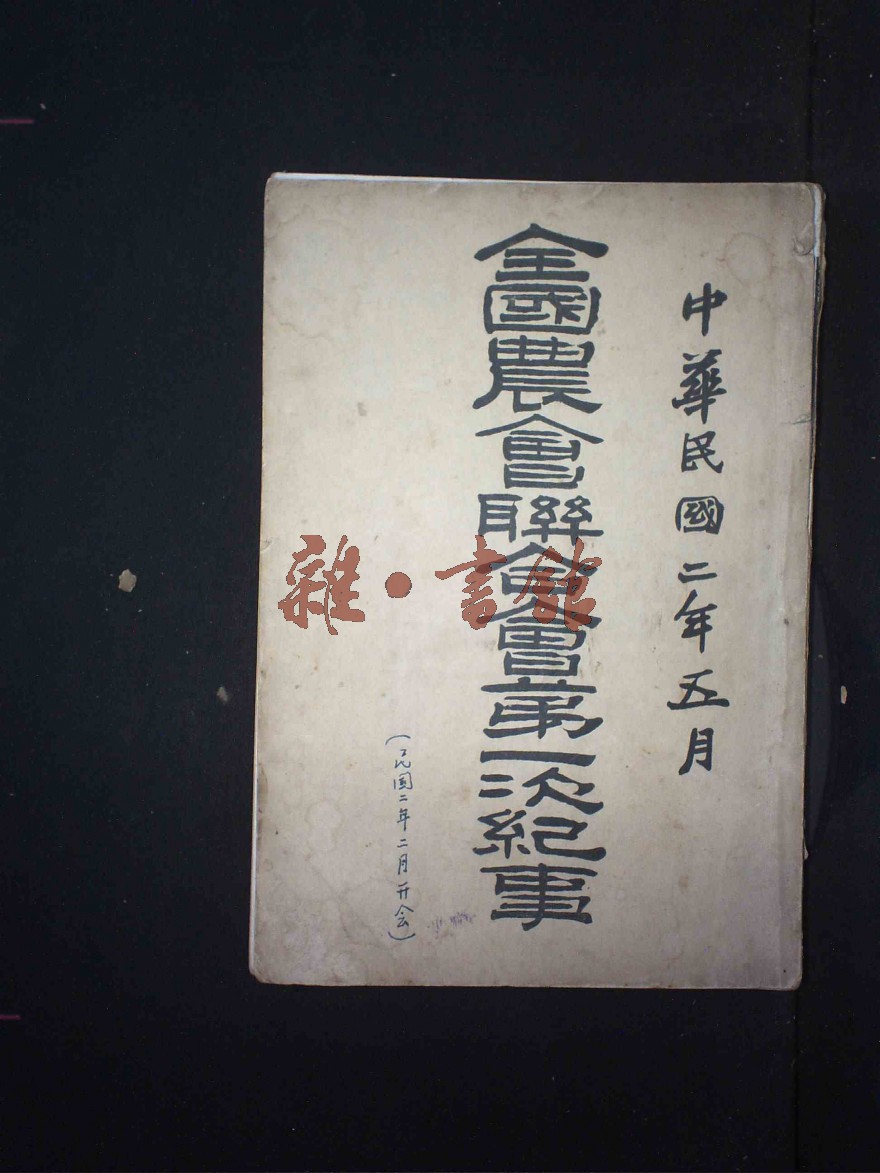 中華民國二年五月
全國農會聯合會第一次紀事
（民国二年二月开会）
雜·書館